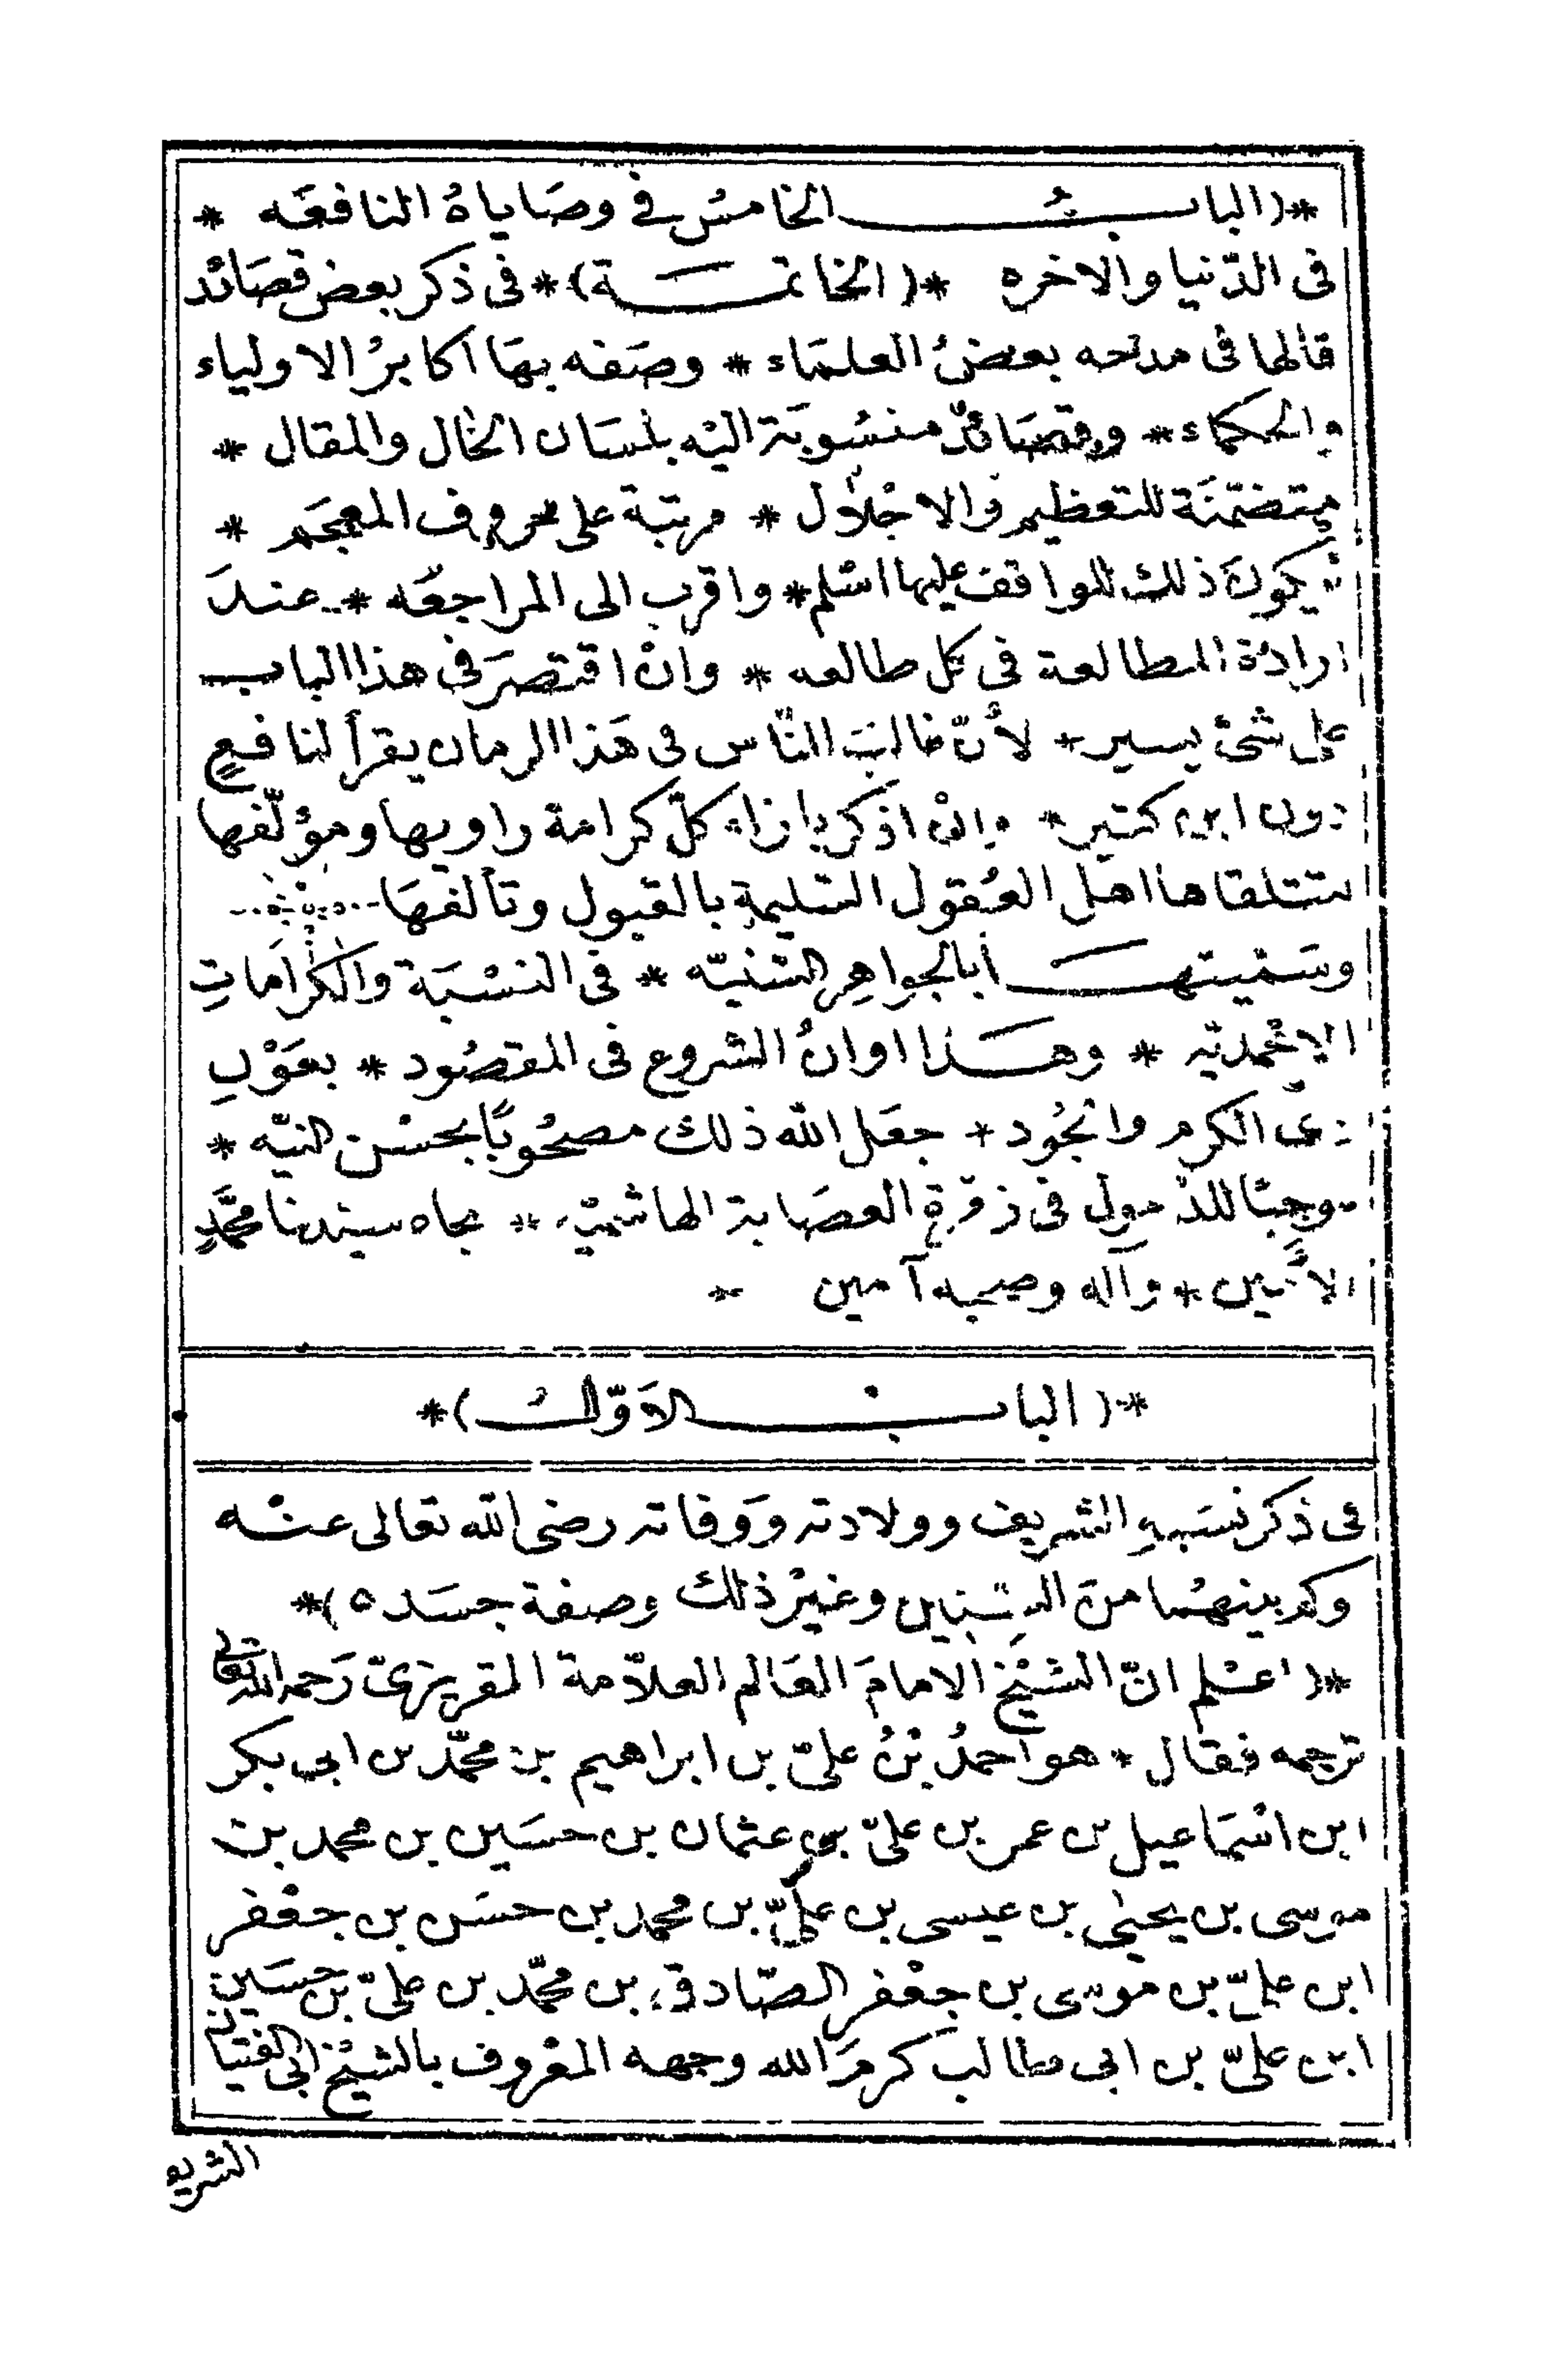 *(البابُ الخامسُ في وصَاياهُ النافعَه *
فى الدّنيا والاخره *(الخاتمَة)* فى ذكر بعض قصَائد
قالها فى مدحه بعضُ العلمَاء * وصَفه بهَا اكابرُ الاولياء
والحكماء * وقصَائدٌ منسُوبَة اليْه بلسَان الحَال والمقال *
متضمّنَة للتعظيم والاجْلال * مرتبة على حروف المعجَم *
ليكونَ ذلك للواقف عليها اسْلم * واقرب الى المراجعَه * عندَ
ارادة المطالعة فى كل طالعه * وانْ اقتصرَ فى هذا الباب
على شئ يسير * لأنّ غالبَ النّاس فى هَذا الزمان يقرأ لنافعٍ
دون ابن كثير * وانْ اذكر بازاء كلّ كرامة راويها ومؤلّفها
لتتلقاها اهل العُقول السَّليمةِ بالقبول وتألفهَا
وسَمّيتهَا بالجواهِر السَّنيّه * فى النسْبَة والكرامَاتِ
الاحْمديّه * وهَذا اوانُ الشروع فى المقصُود * بعَوْنِ
ذى الكرم والجُود * جعَل الله ذلك مصحُوبًا بحسْن النيّه *
موجبًا للدخول فى زمْرةِ العصَابة الهاشميّه * بجاه سيّدنا محمَّدٍ
الأمين * وآله وصحبه آمين *
*(البابُ الاَوّلُ)*
فى ذكر نسَبهِ الشريف وولادته وَوَفاته رضى الله تعالى عنْه
وكم بينهُما منَ السِّنين وغيْر ذلك وصفة جسَده)*
*(اعْلم انّ الشيْخ الامامَ العَالم العلاّمة المقريزىّ رَحمه الله تعالى
ترجمه فقال * هو احمدُ بْنُ علىّ بن ابراهيم بن محمّد بن ابى بكر
ابن اسْمَاعيل بن عمر بن علىّ بن عثمان بن حسَين بن محمد بن
موسى بن يحيٰى بن عيسى بن علىّ بن محمد بن حسَن بن جعْفر
ابن علىّ بن موسى بن جعْفر الصّادق بن محمّد بن علىّ بن حسَين
ابن علىّ بن ابى طالب كرمَ الله وجهه المعْروف بالشيْخ ابى الفتيان
الشريف